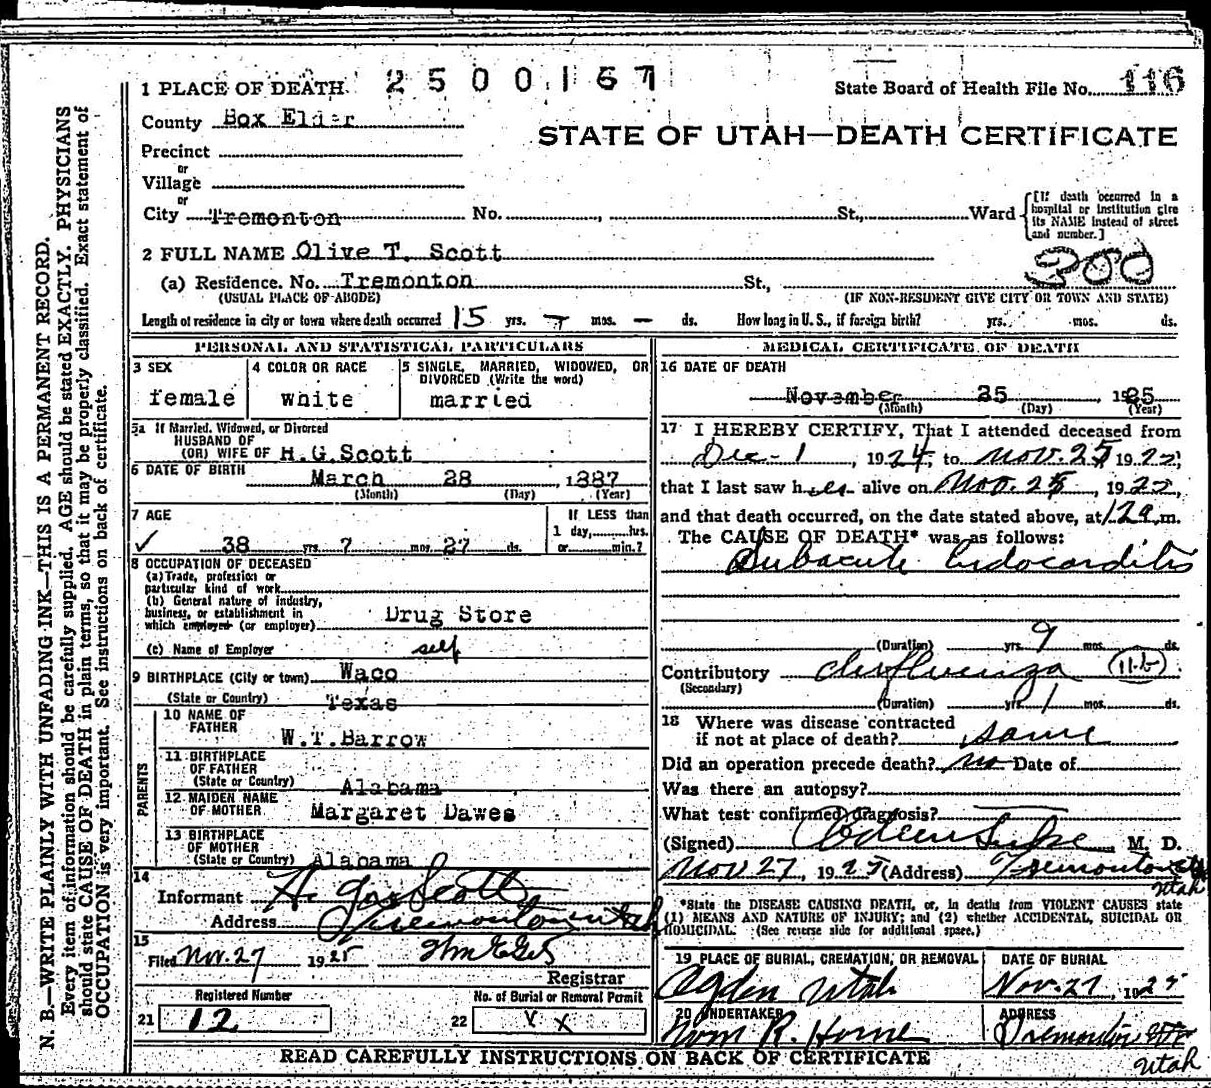 2500167
1 PLACE OF DEATH
State Board of Health File No. 116
County Box Elder
STATE OF UTAH—DEATH CERTIFICATE
Precinct
or
Village
or
City Tremonton No. , St., Ward
[If death occurred in a hospital or institution give its NAME instead of street and number.]
2 FULL NAME Olive T. Scott
300
(a) Residence. No. Tremonton St.,
(USUAL PLACE OF ABODE) (IF NON-RESIDENT GIVE CITY OR TOWN AND STATE)
Length of residence in city or town where death occurred 15 yrs. - mos. - ds. How long in U. S., if foreign birth? yrs. mos. ds.
PERSONAL AND STATISTICAL PARTICULARS
3 SEX
female
4 COLOR OR RACE
white
5 SINGLE, MARRIED, WIDOWED, OR DIVORCED (Write the word)
married
5a If Married, Widowed, or Divorced
HUSBAND OF
(OR) WIFE OF H.G.Scott
6 DATE OF BIRTH
March 28 , 1887
(Month) (Day) (Year)
7 AGE
38 yrs. 7 mos. 27 ds.
If LESS than
1 day, hrs.
or min.?
8 OCCUPATION OF DECEASED
(a) Trade, profession or
particular kind of work
(b) General nature of industry,
business, or establishment in
which employed (or employer) Drug Store
(c) Name of Employer self
9 BIRTHPLACE (City or town) Waco
(State or Country) Texas
PARENTS
10 NAME OF
FATHER W.T.Barrow
11 BIRTHPLACE
OF FATHER
(State or Country) Alabama
12 MAIDEN NAME
OF MOTHER Margaret Dawes
13 BIRTHPLACE
OF MOTHER
(State or Country) Alabama
14
Informant H. Scott
Address Tremonton Utah
15
Filed Nov. 27 1925
Registrar
Registered Number
21 12
No. of Burial or Removal Permit
22 x x
MEDICAL CERTIFICATE OF DEATH
16 DATE OF DEATH
November 25 , 1925
(Month) (Day) (Year)
17 I HEREBY CERTIFY, That I attended deceased from
Dec - 1 , 1924, to Nov. 25 1925,
that I last saw her alive on Nov. 25 , 1925,
and that death occurred, on the date stated above, at 12a.m.
The CAUSE OF DEATH* was as follows:
Subacute Endocarditis
(Duration) yrs. 9 mos. ds.
Contributory Influenza (11-b)
(Secondary)
(Duration) yrs. 1 mos. ds.
18 Where was disease contracted
if not at place of death? same
Did an operation precede death? no Date of
Was there an autopsy?
What test confirmed diagnosis?
(Signed) M. D.
Nov 27, 1925 (Address) Tremonton Utah
*State the DISEASE CAUSING DEATH, or, in deaths from VIOLENT CAUSES state
(1) MEANS AND NATURE OF INJURY; and (2) whether ACCIDENTAL, SUICIDAL OR
HOMICIDAL. (See reverse side for additional space.)
19 PLACE OF BURIAL, CREMATION, OR REMOVAL
Ogden Utah
DATE OF BURIAL
Nov. 27, 1925
20 UNDERTAKER
Wm R. Horne
ADDRESS
Tremonton
Utah
READ CAREFULLY INSTRUCTIONS ON BACK OF CERTIFICATE
N. B.—WRITE PLAINLY WITH UNFADING INK—THIS IS A PERMANENT RECORD.
Every item of information should be carefully supplied. AGE should be stated EXACTLY. PHYSICIANS
should state CAUSE OF DEATH in plain terms, so that it may be properly classified. Exact statement of
OCCUPATION is very important. See instructions on back of certificate.